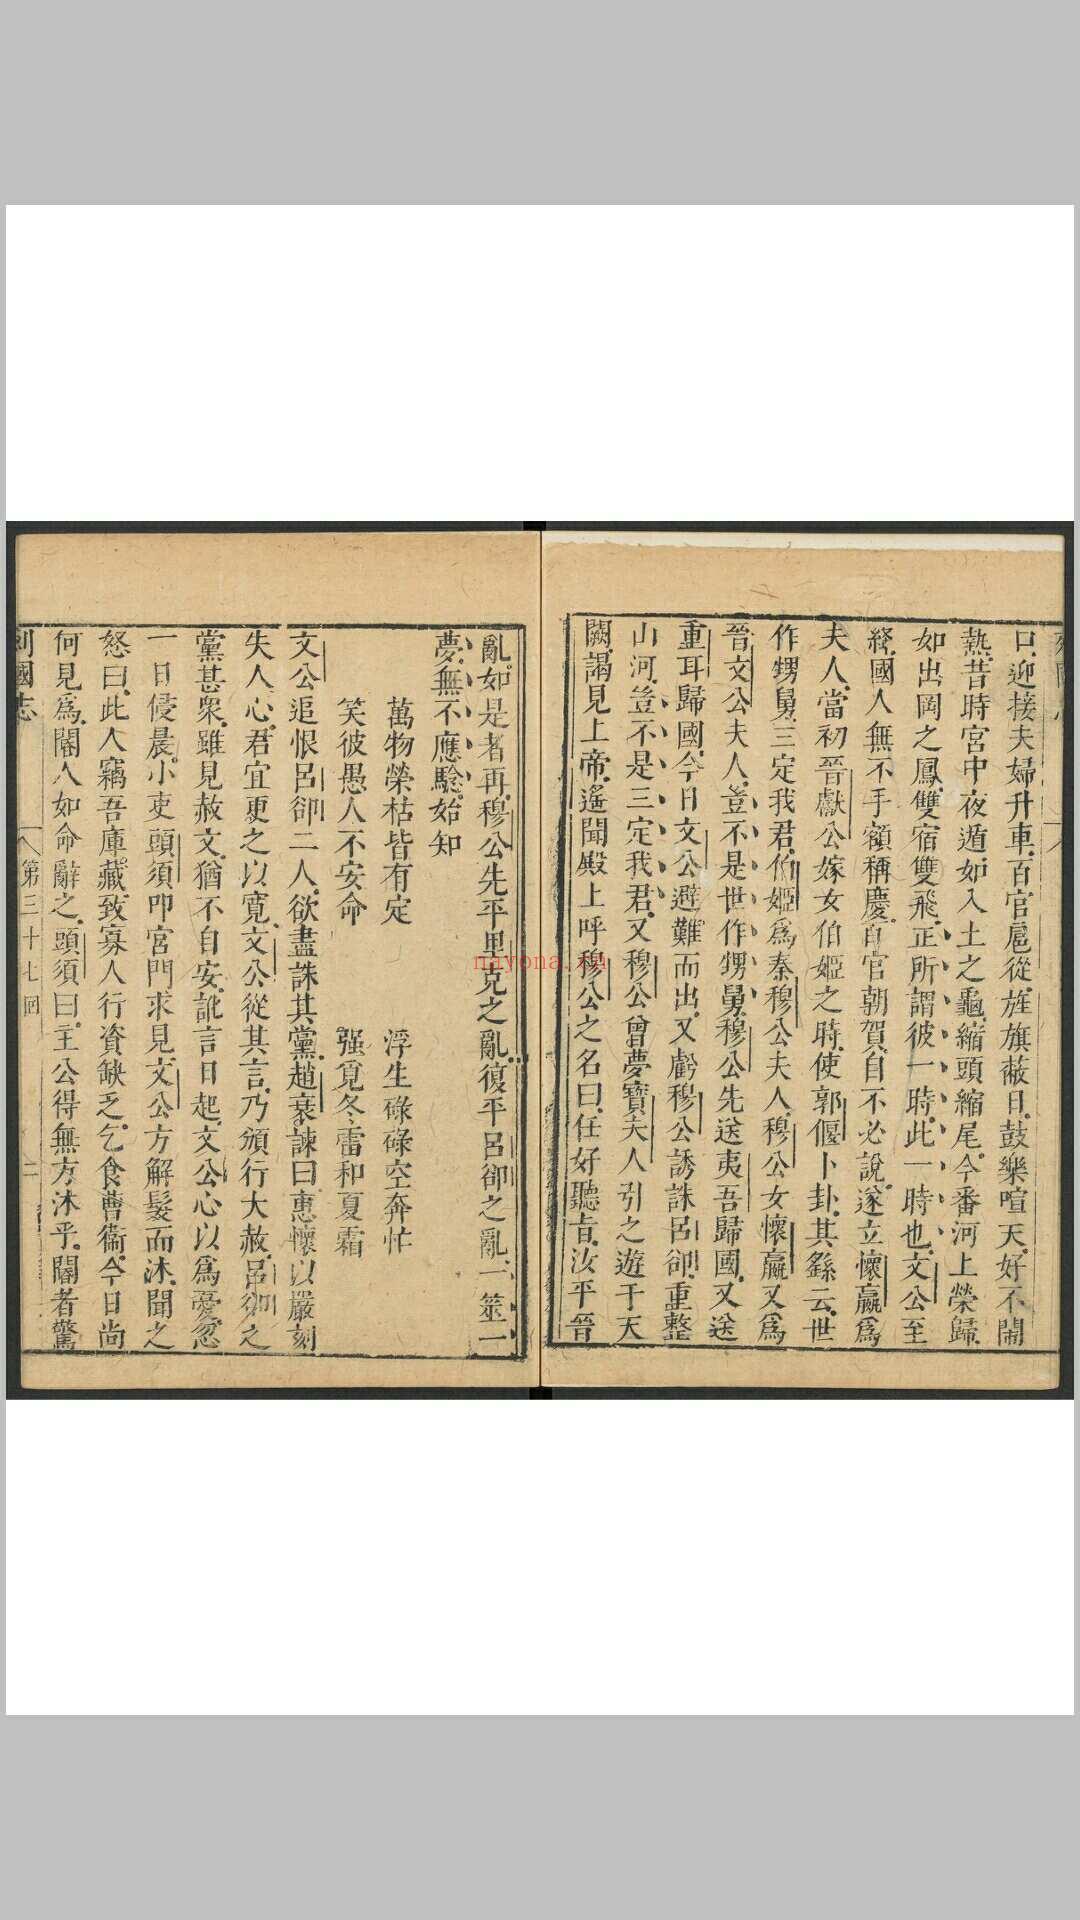 口.迎接夫婦升車.百官扈從.旌旗蔽日.鼓樂喧天.好不鬧
熱.昔時宮中夜遁.如入土之龜.縮頭縮尾.今番河上榮歸.
如出岡之鳳.雙宿雙飛.正所謂彼一時.此一時也.文公至
絳.國人無不手額稱慶.百官朝賀.自不必說.遂立懷嬴爲
夫人.當初晉獻公嫁女伯姬之時.使郭偃卜卦.其繇云.世
作甥舅.三定我君.伯姬爲秦穆公夫人.穆公女懷嬴又爲
晉文公夫人.豈不是世作甥舅.穆公先送夷吾歸國.又送
重耳歸國.今日文公避難而出.又虧穆公誘誅呂郤.重整
山河.豈不是三定我君.又穆公曾夢寶夫人引之遊于天
闕.謁見上帝.遙聞殿上呼穆公之名曰.任好聽旨.汝平晉
亂.如是者再.穆公先平里克之亂.復平呂郤之亂.一筮一
夢.無不應驗.始知
萬物榮枯皆有定 浮生碌碌空奔忙
笑彼愚人不安命 强覓冬雷和夏霜
文公追恨呂郤二人.欲盡誅其黨.趙衰諫曰.惠懷以嚴刻
失人心.君宜更之以寬.文公從其言.乃頒行大赦.呂郤之
黨甚衆.雖見赦文.猶不自安.訛言日起.文公心以爲憂.忽
一日侵晨.小吏頭須叩宮門求見.文公方解髮而沐.聞之
怒曰.此人竊吾庫藏.致寡人行資缺乏.乞食曹衞.今日尚
何見爲.閽人如命辭之.頭須曰.主公得無方沐乎.閽者驚
列國志 第三十七回 二
nayona.cn